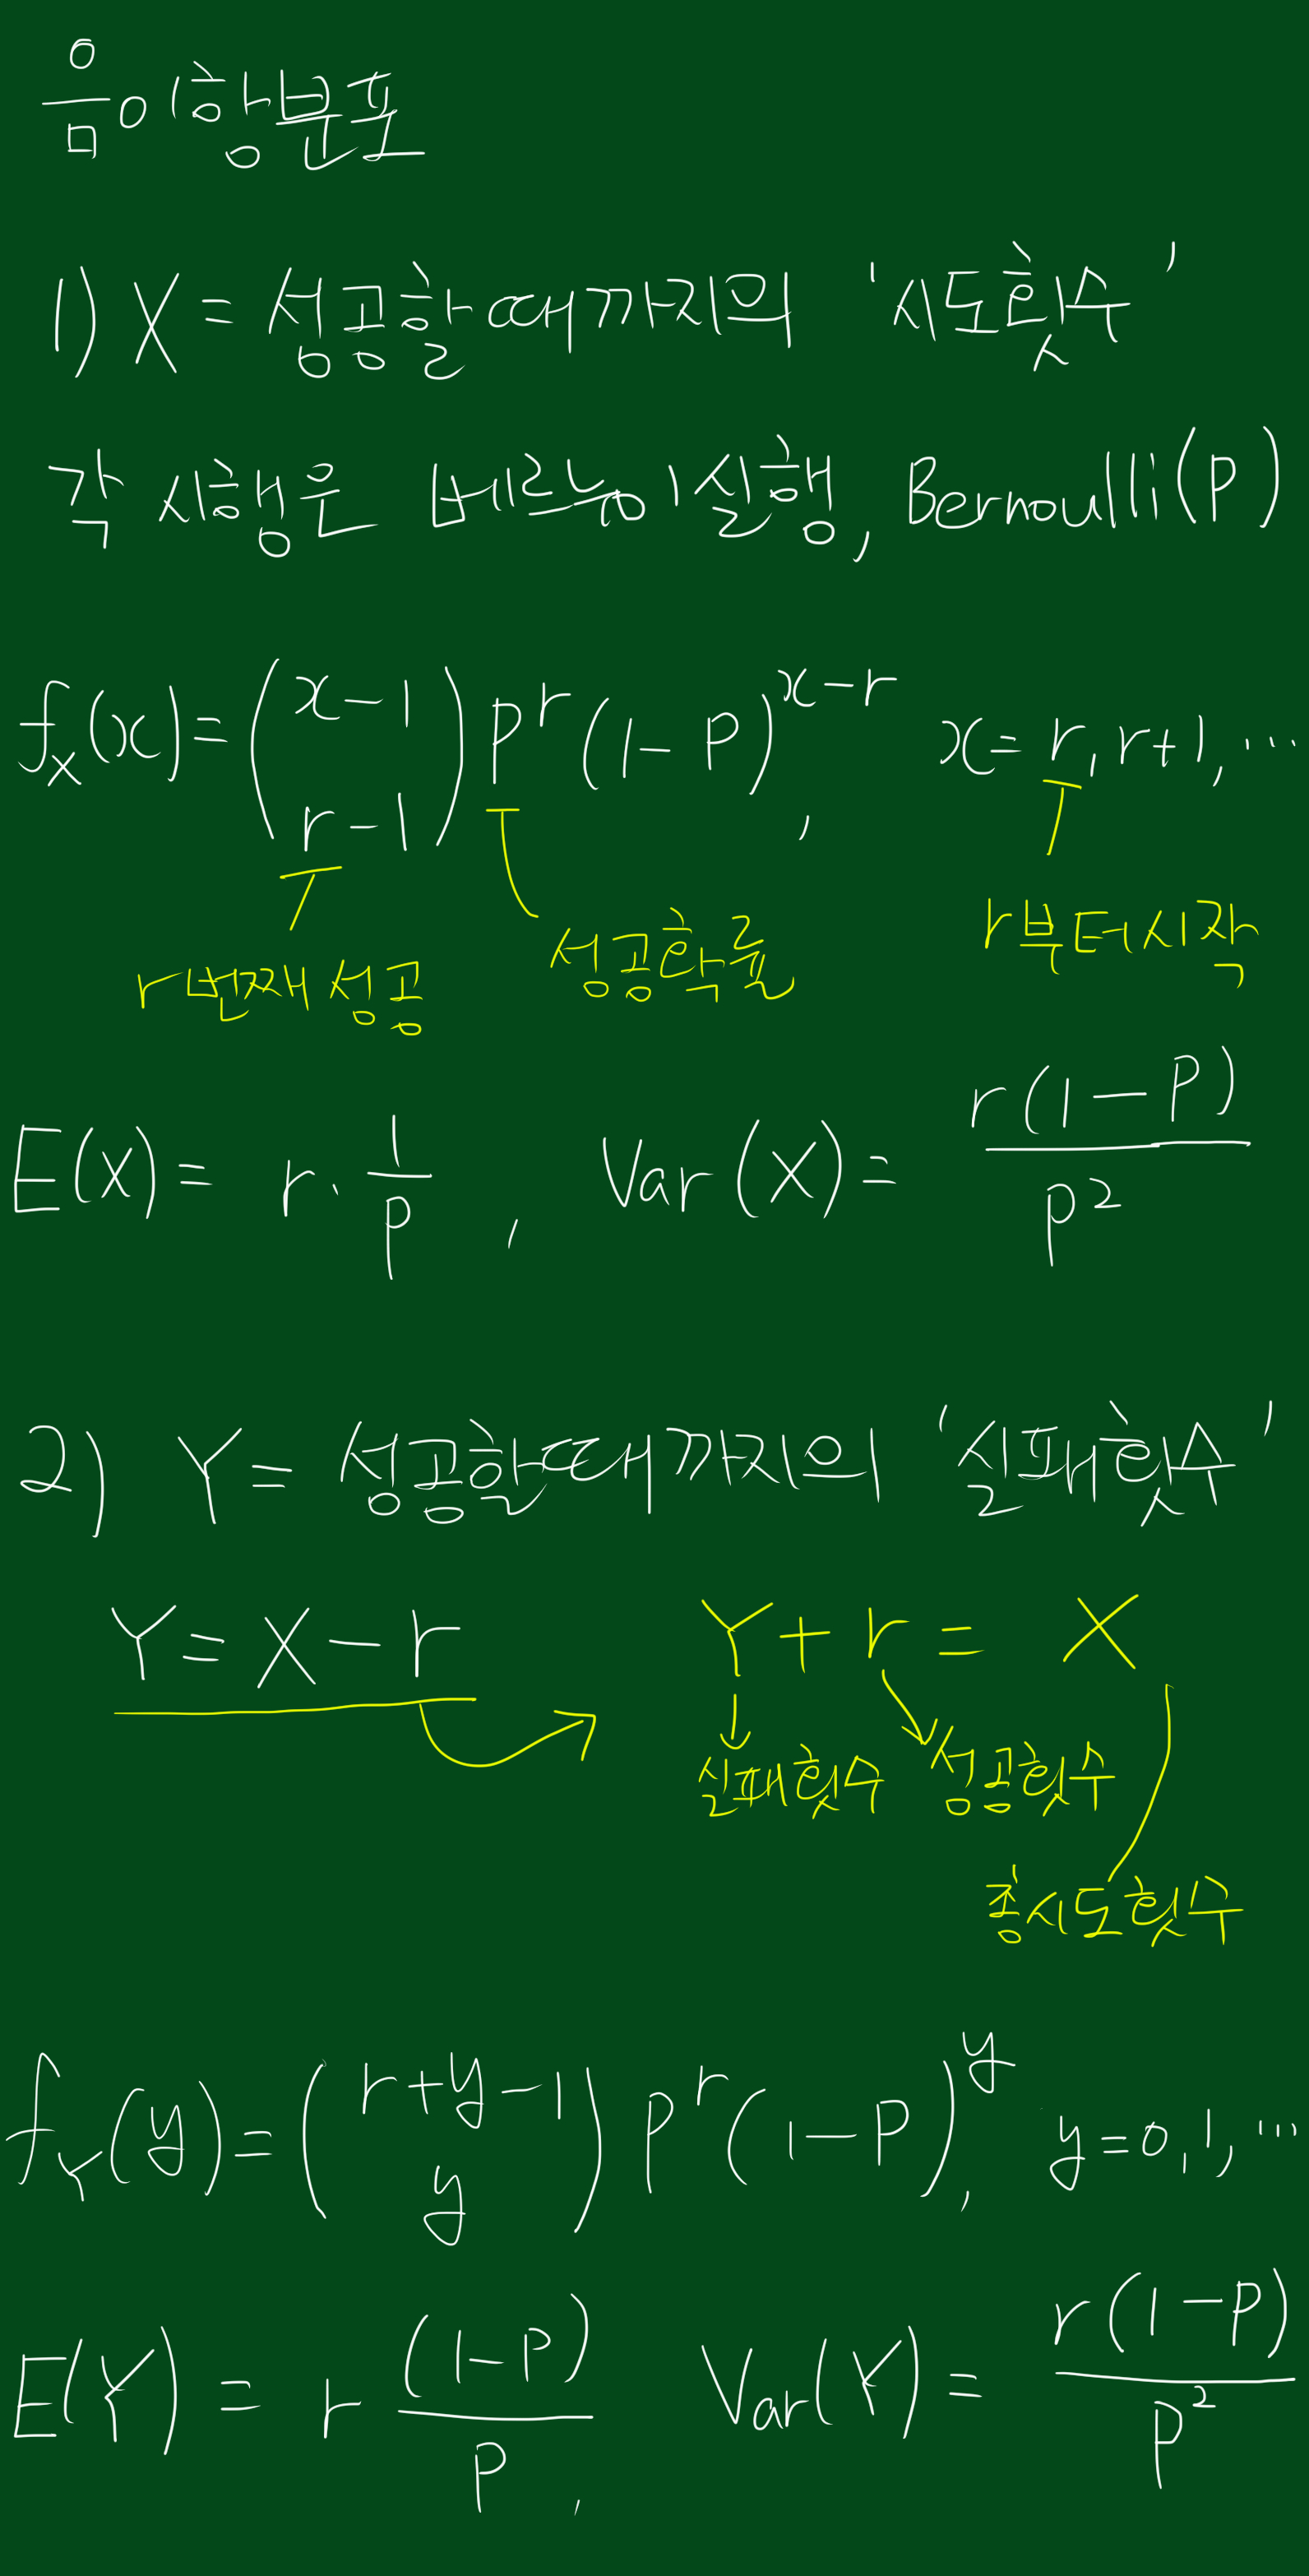 음이항분포
1) X = 성공할때까지의 '시도횟수'
각 시행은 베르누이실행, Bernoulli(P)
f_X(x) = (x-1 r-1) P^r (1-P)^{x-r}, x = r, r+1, ...
r번째성공 성공확률 r부터시작
E(X) = r · 1/P, Var(X) = r(1-P)/P^2
2) Y = 성공할때까지의 '실패횟수'
Y = X - r Y + r = X
실패횟수 성공횟수
총시도횟수
f_Y(y) = (r+y-1 y) P^r (1-P)^y, y = 0, 1, ...
E(Y) = r (1-P)/P, Var(Y) = r(1-P)/P^2